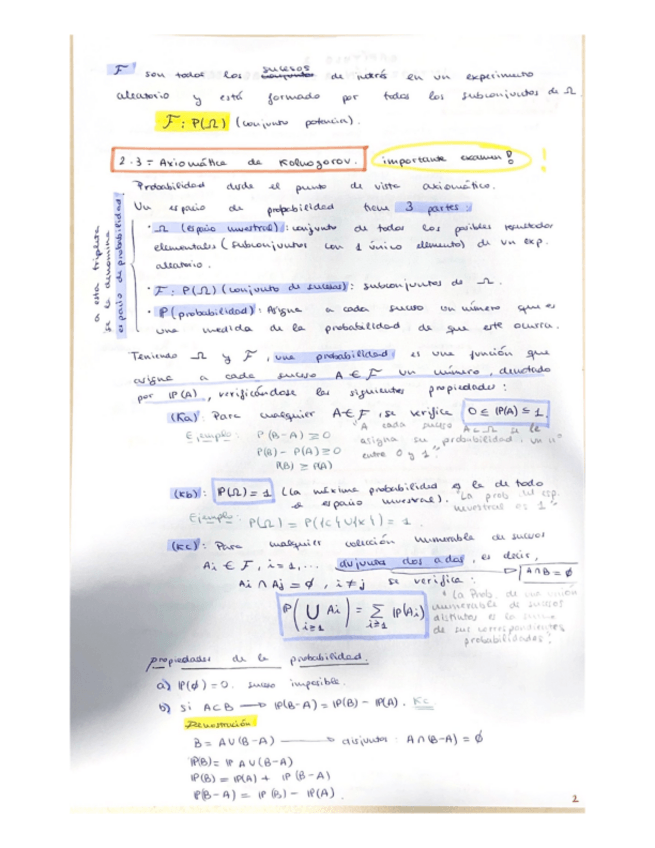 F son todos los sucesos de interés en un experimento
aleatorio y está formado por todos los subconjuntos de Ω.
F: P(Ω) (conjunto potencia).
2.3 = Axiomática de Kolmogorov. importante examen! !
Probabilidad desde el punto de vista axiomático.
Un espacio de probabilidad tiene 3 partes:
· Ω (espacio muestral): conjunto de todos los posibles resultados
elementales (subconjuntos con 1 único elemento) de un exp.
aleatorio.
· F: P(Ω) (conjunto de sucesos): subconjuntos de Ω.
· P (probabilidad): Asigna a cada suceso un número que es
una medida de la probabilidad de que este ocurra.
a esta tripleta
se la denomina
espacio de probabilidad!
Teniendo Ω y F, una probabilidad es una función que
asigna a cada suceso A ∈ F un número, denotado
por P(A), verificándose las siguientes propiedades:
(Ka): Para cualquier A ∈ F, se verifica 0 ≤ P(A) ≤ 1.
Ejemplo: P(B-A) ≥ 0
P(B) - P(A) ≥ 0
P(B) ≥ P(A)
"A cada suceso A⊂Ω se le
asigna su probabilidad, un nº
entre 0 y 1".
(Kb): P(Ω) = 1 (La máxima probabilidad es la de todo
el espacio muestral). "La prob. del esp.
muestral es 1"
Ejemplo: P(Ω) = P({c}∪{x}) = 1.
(Kc): Para cualquier colección numerable de sucesos
Ai ∈ F, i=1,... disjuntos dos a dos, es decir,
Ai ∩ Aj = ∅, i ≠ j se verifica: A∩B = ∅
P(⋃ i≥1 Ai) = Σ i≥1 P(Ai)
"La Prob. de una unión
numerable de sucesos
distintos es la suma
de sus correspondientes
probabilidades".
propiedades de la probabilidad.
a) P(∅) = 0. suceso imposible.
b) si A⊂B → P(B-A) = P(B) - P(A). Kc
Demostración
B = A∪(B-A) → disjuntos: A∩(B-A) = ∅
P(B) = P A∪(B-A)
P(B) = P(A) + P(B-A)
P(B-A) = P(B) - P(A).
2